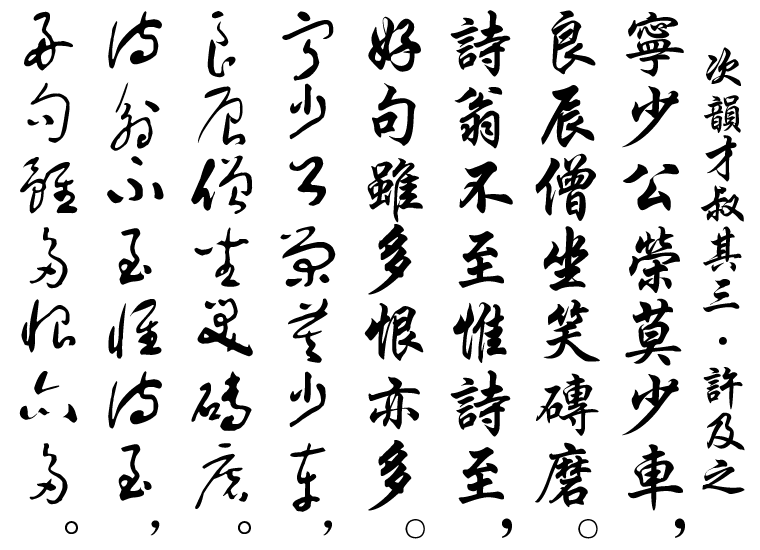 次韻才叔其三・許及之
寧少公榮莫少車，
良辰僧坐笑磚磨。
詩翁不至惟詩至，
好句雖多恨亦多。
寧少公榮莫少車，
良辰僧坐笑磚磨。
詩翁不至惟詩至，
好句雖多恨亦多。